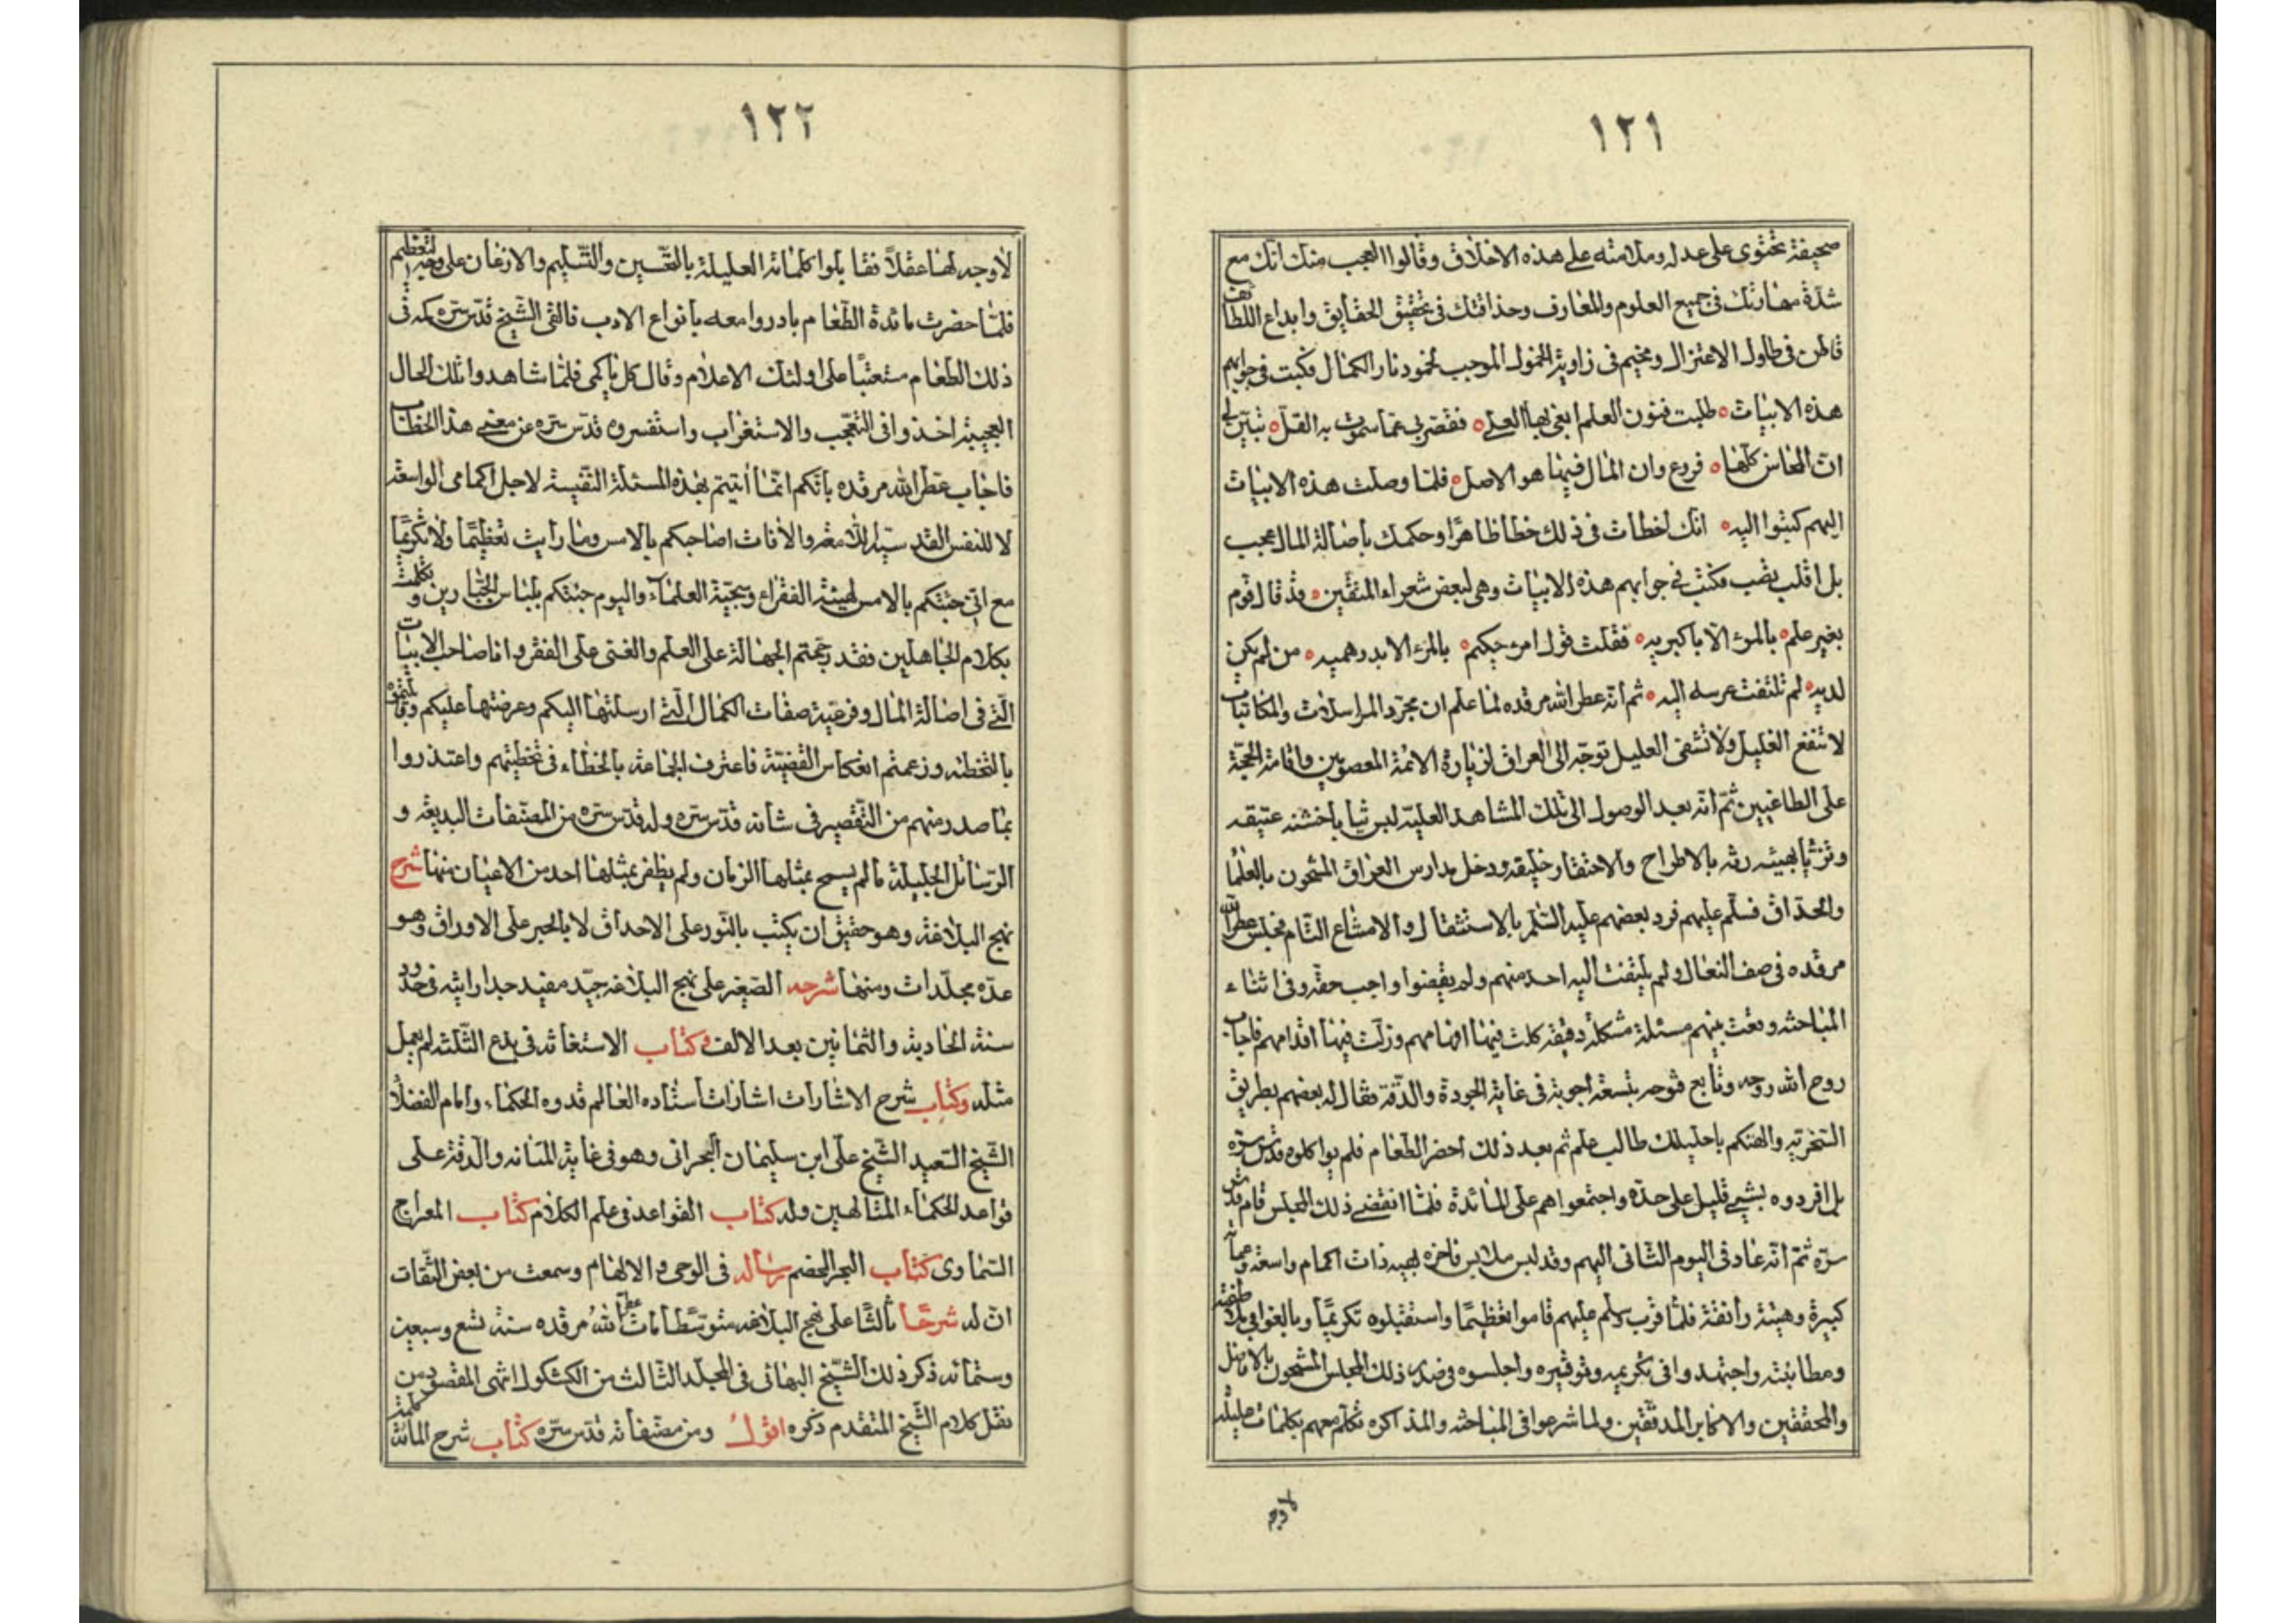 ١٢١
صحيفة تحتوى على عدله وملامته على هذه الاخلاق وقالوا العجب منك انك مع
شدّة مهارتك فى جميع العلوم والمعارف وحذاقتك فى تحقيق الحقايق وابداع اللطائف
قاطن فى طلول الاعتزال ومخيم فى زاوية الخمول الموجب لخمود نار الكمال فكتبت فى جوابهم
هذه الابيات طلبت فنون العلم ابغى بها العلى فقصر بى عما سموت به القلّ تبيّن لى
انّ المحاسن كلّها فروع وان المال فيها هو الاصل فلمّا وصلت هذه الابيات
اليهم كتبوا اليه انّك اخطات فى ذلك خطا ظاهرًا وحكمك باصالة المال عجب
بل اقلب تصب فكتب فى جوابهم هذه الابيات وهى لبعض شعراء المتقين قد قال قوم
بغير علم ما المرء الّا باكبريه فقلت قول امرء حكيم ما المرء الا بدرهميه من لم يكن
لديه لم تلتفت عرسه اليه ثم انّه عطر الله مرقده لما علم ان مجرّد المراسلات والمكاتبات
لا تنفع الغليل ولا تشفى العليل توجّه الى العراق لزيارة الائمة المعصومين واقامة الحجّة
على الطاغيين ثمّ انّه بعد الوصول الى تلك المشاهد العلية لبس ثيابا خشنه عتيقه
وتزيّا بهيئه رثه بالاطراح والاحتقار خليقه ودخل مدارس العراق المشحون بالعلماء
والحذاق فسلّم عليهم فرد بعضهم عليه السّلم بالاستثقال والامتناع التام فجلس عطر الله
مرقده فى صف النعال ولم يلتفت اليه احد منهم ولم يقضوا واجب حقّه وفى اثناء
المباحثه وقعت بينهم مسئلة مشكلة دقيقه كلت فيها افهامهم وزلّت فيها اقدامهم فاجاب
روح الله روحه وتابع فتوحه بتسعة اجوبة فى غاية الجودة والدّقة فقال له بعضهم بطريق
السّخرية والتهكم يا خليلك طالب علم ثم بعد ذلك احضر الطّعام فلم يواكلوه قدّس سرّه
بل افردوه بشىء قليل على حدّه واجتمعوا هم على المائدة فلمّا انقضى ذلك المجلس قام قدّس
سرّه ثمّ انّه عاد فى اليوم الثّانى اليهم وقد لبس ملابس فاخره بهيه ذات اكمام واسعه وعمامة
كبيرة وهيئة رائقة فلمّا قرب وسلم عليهم قاموا تعظيمًا واستقبلوه تكريمًا وبالغوا فى ملاطفته
ومطايبته واجتهدوا فى تكريمه وتوقيره واجلسوه فى صدر ذلك المجلس المشحون بالافاضل
والمحققين والاكابر المدققين ولما شرعوا فى المباحثه والمذاكره تكلّم معهم بكلمات عليلة
لاوجه
١٢٢
لاوجه لها عقلاً فقابلوا كلماته العليلة بالتّحسين والتّسليم والاذعان على وجه التّعظيم
فلمّا حضرت مائدة الطّعام بادروا معه بانواع الادب فالقى الشّيخ قدّس سرّه كمه فى
ذلك الطّعام مستعتبًا على اولئك الاعلام وقال كل يا كمّى فلمّا شاهدوا تلك الحال
العجيبة اخذوا فى التّعجّب والاستغراب واستفسروه قدّس سرّه عن معنى هذا الخطاب
فاجاب عطّر الله مرقده بانّكم انّما اتيتم بهذه المسئلة النّفيسة لاجل اكمامى الواسعة
لا للنفس القدسيّة اللامعة والا فانا صاحبكم بالامس وما رايت تعظيمًا ولا تكريمًا
مع انّى جئتكم بالامس بهيئة الفقراء وسجيّة العلماء واليوم جئتكم بلباس الجبّارين وتكلمت
بكلام الجاهلين فقد رجّحتم الجهالة على العلم والغنى على الفقر وانا صاحب الابيات
الّتى فى اصالة المال وفرعيّة صفات الكمال الّتى ارسلتها اليكم وعرضتها عليكم وقابلتموه
بالتخطئه وزعمتم انعكاس القضيّة فاعترف الجماعة بالخطاء فى تخطئتهم واعتذروا
بما صدر منهم من التّقصير فى شانه قدّس سرّه وله قدّس سرّه من المصنّفات البديعة و
الرّسائل الجليلة ما لم يسمح بمثلها الزمان ولم يظفر بمثلها احد من الاعيان منها شرح
نهج البلاغة وهو حقيق ان يكتب بالنّور على الاحداق لا بالحبر على الاوراق وهو
عدّه مجلّدات ومنها شرحه الصّغير على نهج البلاغه جيّد مفيد جدا رايته فى حدود
سنة الحادية والثمانين بعد الالف وكتاب الاستغاثه فى بدع الثّلثه لم يعمل
مثله وكتاب شرح الاشارات اشارات استاده العالم قدوه الحكماء وامام الفضلا
الشّيخ السّعيد الشّيخ على ابن سليمان البحرانى وهو فى غاية المتانه والدقة على
قواعد الحكماء المتالهين وله كتاب القواعد فى علم الكلام كتاب المعراج
السّماوى كتاب البحر الخضم رسالة فى الوحى والالهام وسمعت من بعض الثّقات
انّ له شرحًا ثالثًا على نهج البلاغه متوسّطا مات عطر الله مرقده سنة تسع وسبعين
وستمائه ذكر ذلك الشّيخ البهائى فى المجلّد الثّالث من الكشكول انتهى المقصود من
نقل كلام الشّيخ المتقدم ذكره اقول ومن مصنّفاته قدّس سرّه كتاب شرح المائة كلمة